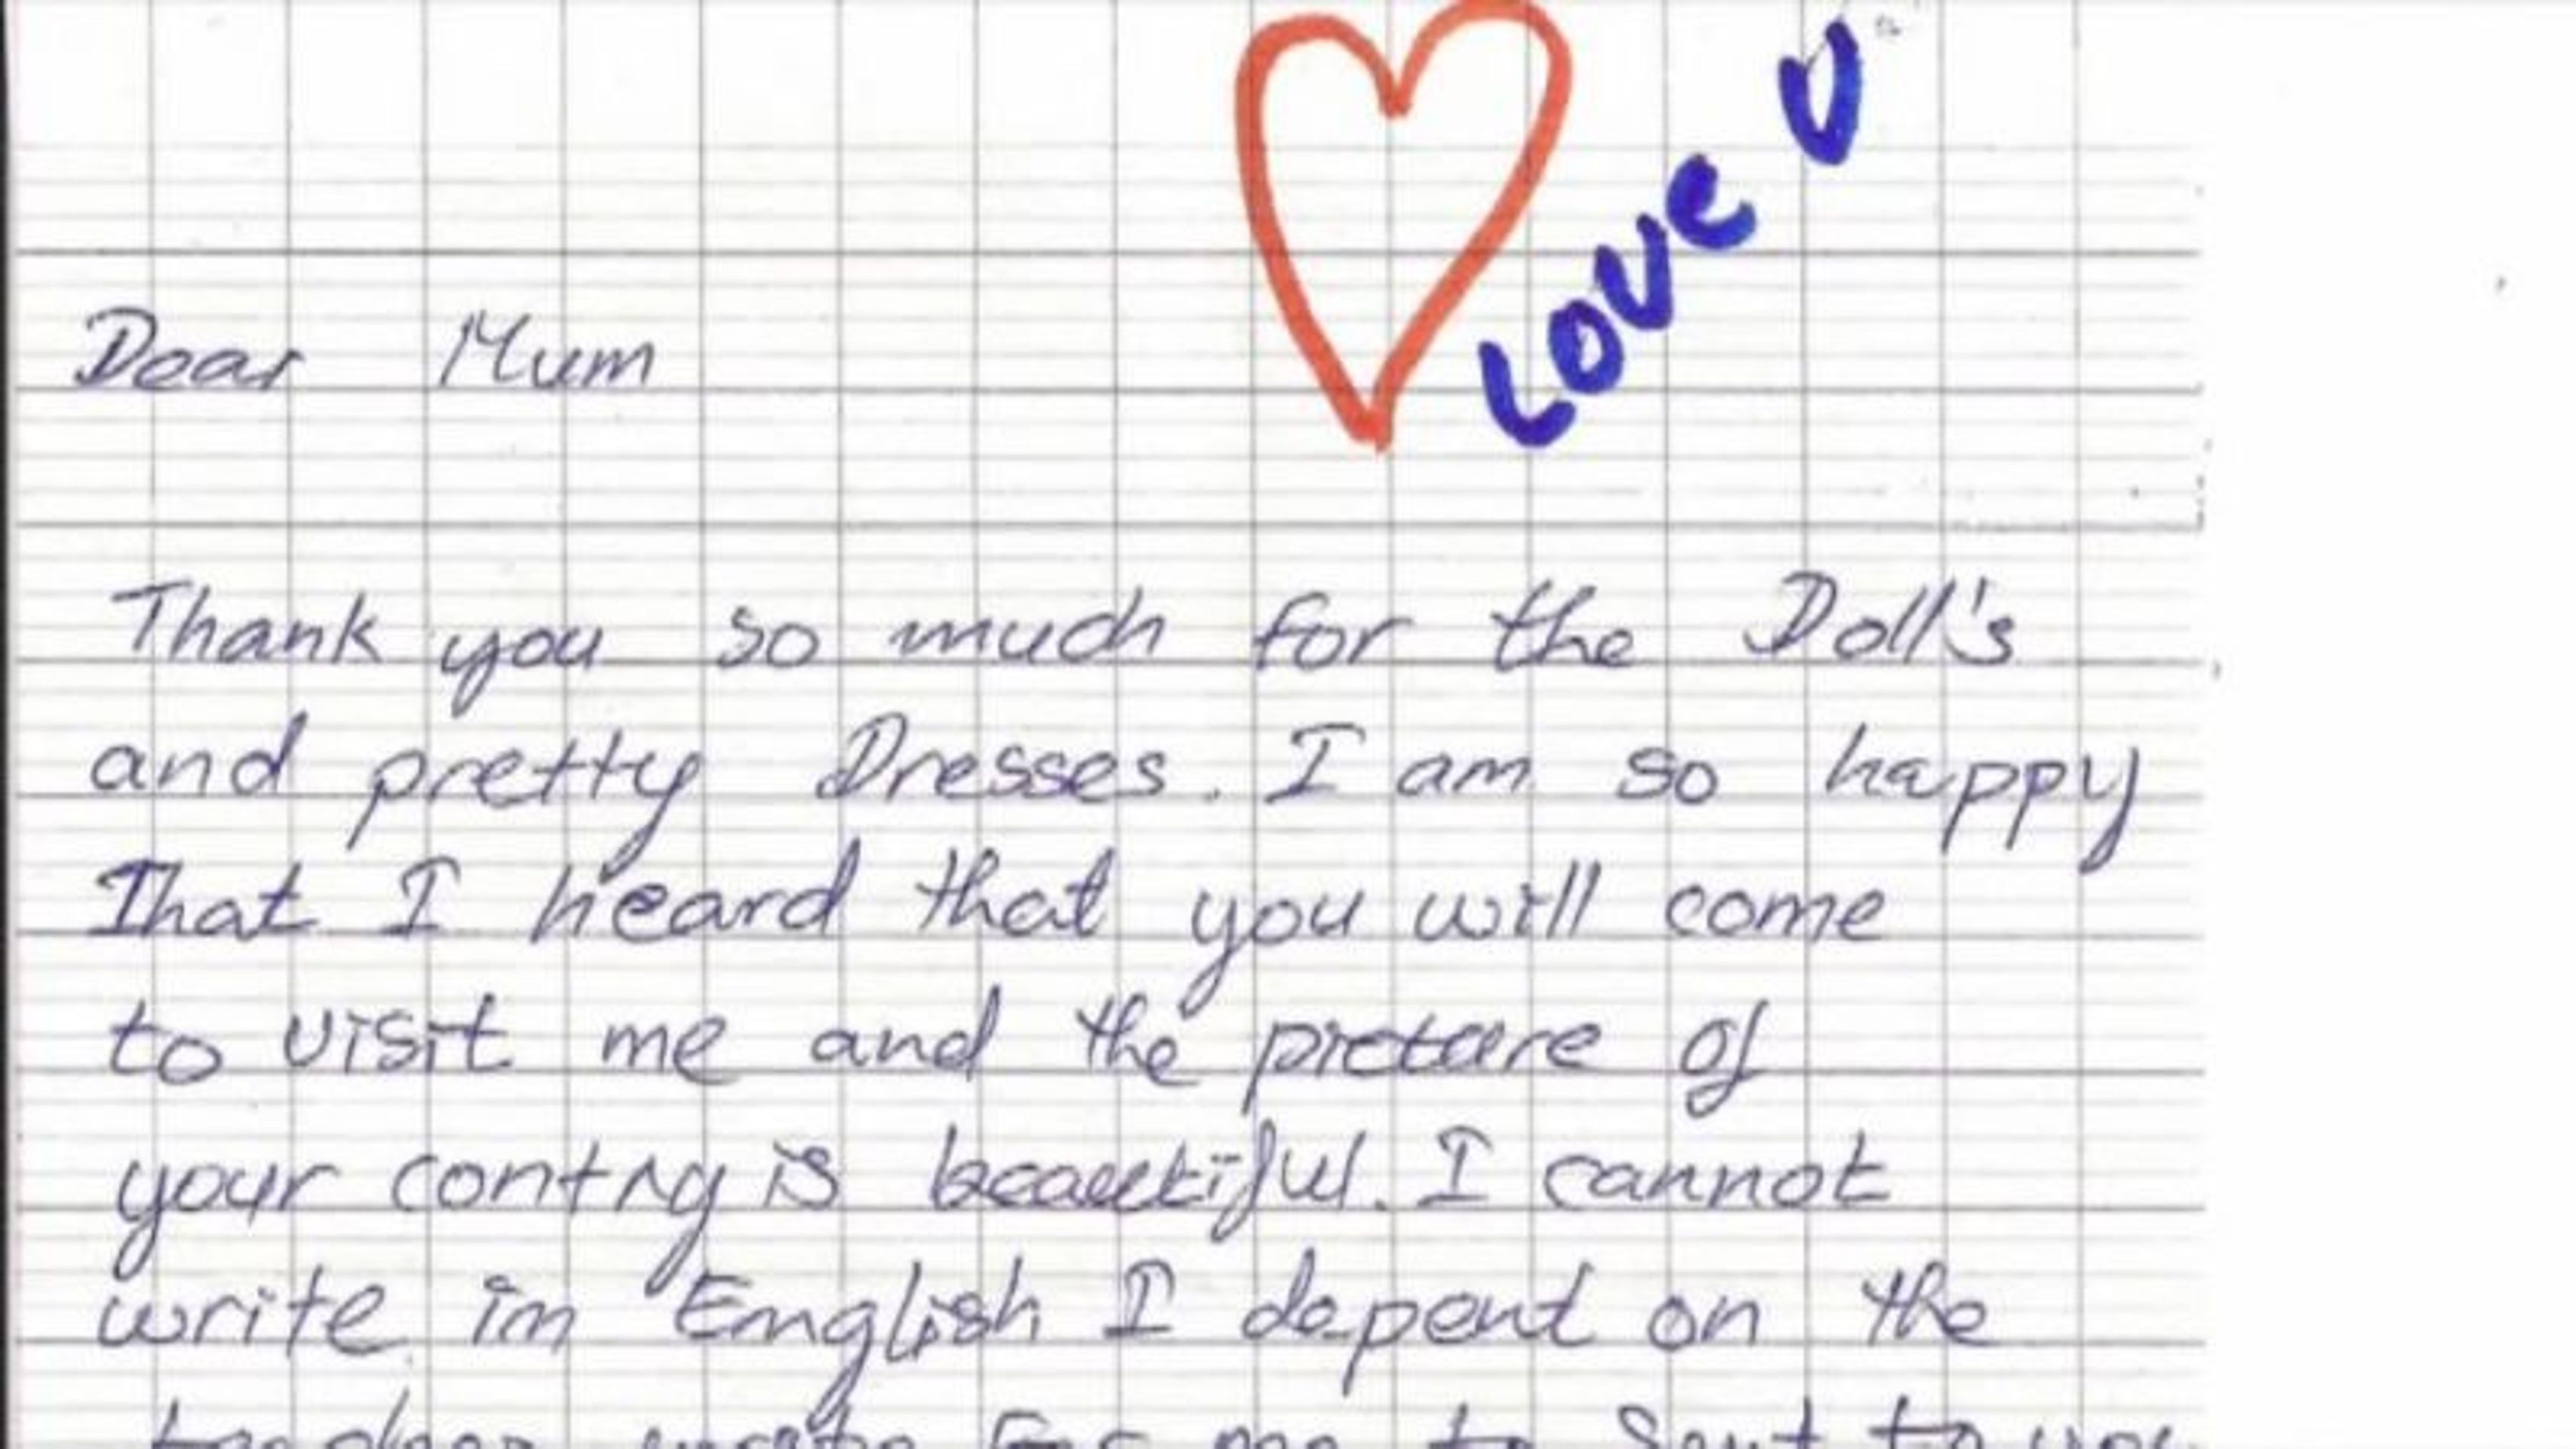 Love U
Dear Mum
Thank you so much for the Doll's
and pretty Dresses. I am so happy
That I heard that you will come
to visit me and the picture of
your contry is beautiful. I cannot
write in English I depend on the
teacher wrote for me to sent to you